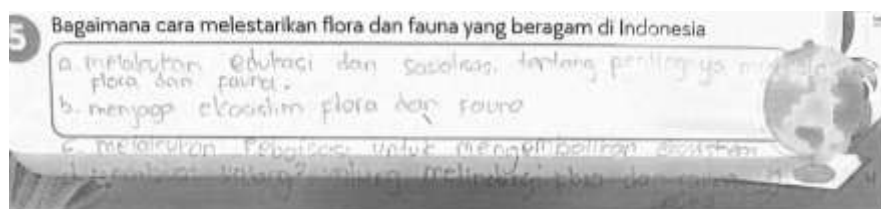 5
Bagaimana cara melestarikan flora dan fauna yang beragam di Indonesia
a. melakukan edukasi dan sosalisasi tentang pentingnya
flora dan fauna.
b. menjaga ekosistim flora dan fauna
c. melakukan reboisasi untuk mengembalikan ekosistem
melindungi flora dan fauna